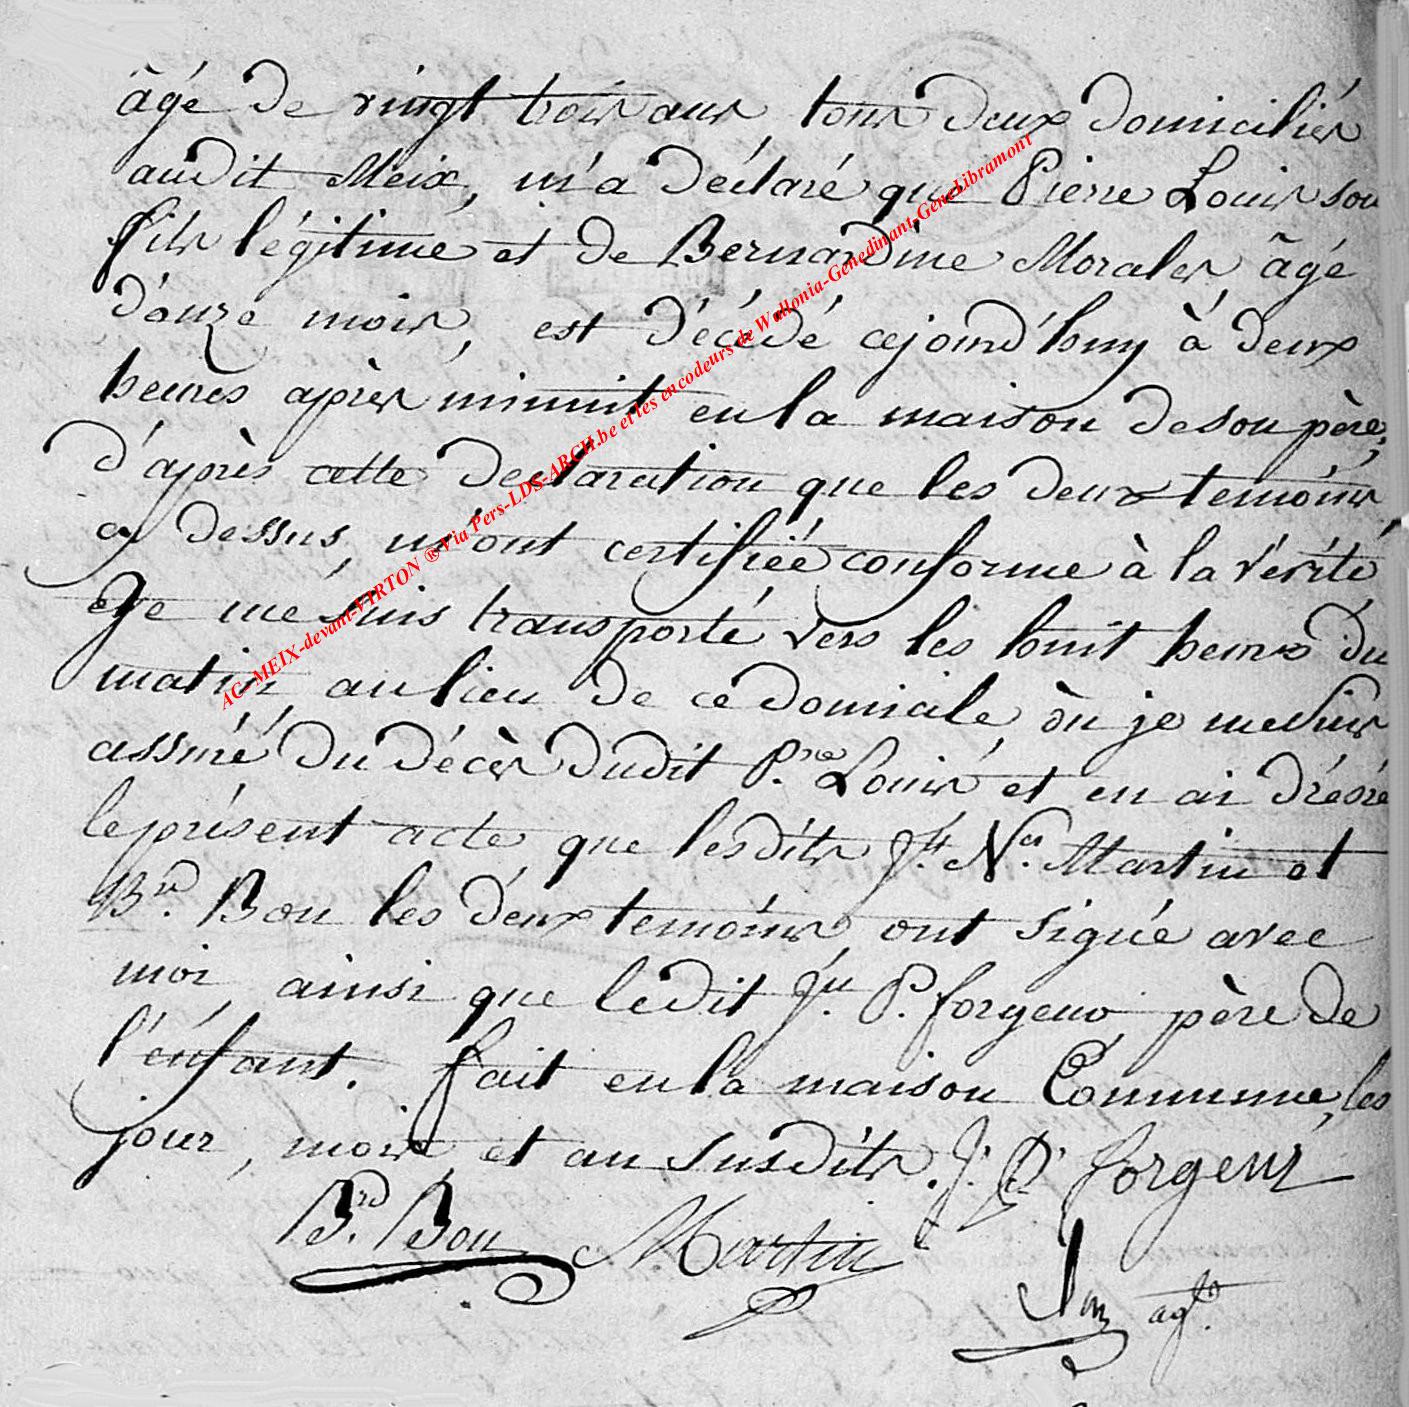 âgé de vingt trois ans, tous deux domiciliés
audit Meix, m'a déclaré que Pierre Louis son
fils légitime et de Bernardine Morales, âgé
d'onze mois, est décédé cejourd'huy à deux
heures après minuit en la maison de son père,
d'après cette declaration que les deux temoins
cy dessus, m'ont certifiée conforme à la vérité
Je me suis transporté vers les huit heures du
matin au lieu de ce domicile, où je me suis
assuré du décès dudit P.re Louis et en ai dréssé
le présent acte, que lesdits J.h N.as Martin et
B.rd Bon les deux temoins, ont signé avec
moi, ainsi que lèdit J.n P. forgeur, père de
l'énfant. fait en la maison Commune, les
jour, mois et an susdits. J. P. forgeur
B.rd Bon Martin
ag.t
AC- MEIX-devant-VIRTON ® Via Pers-LDS-ARCH.be et les encodeurs de Wallonia-Genedinant-GeneLibramont